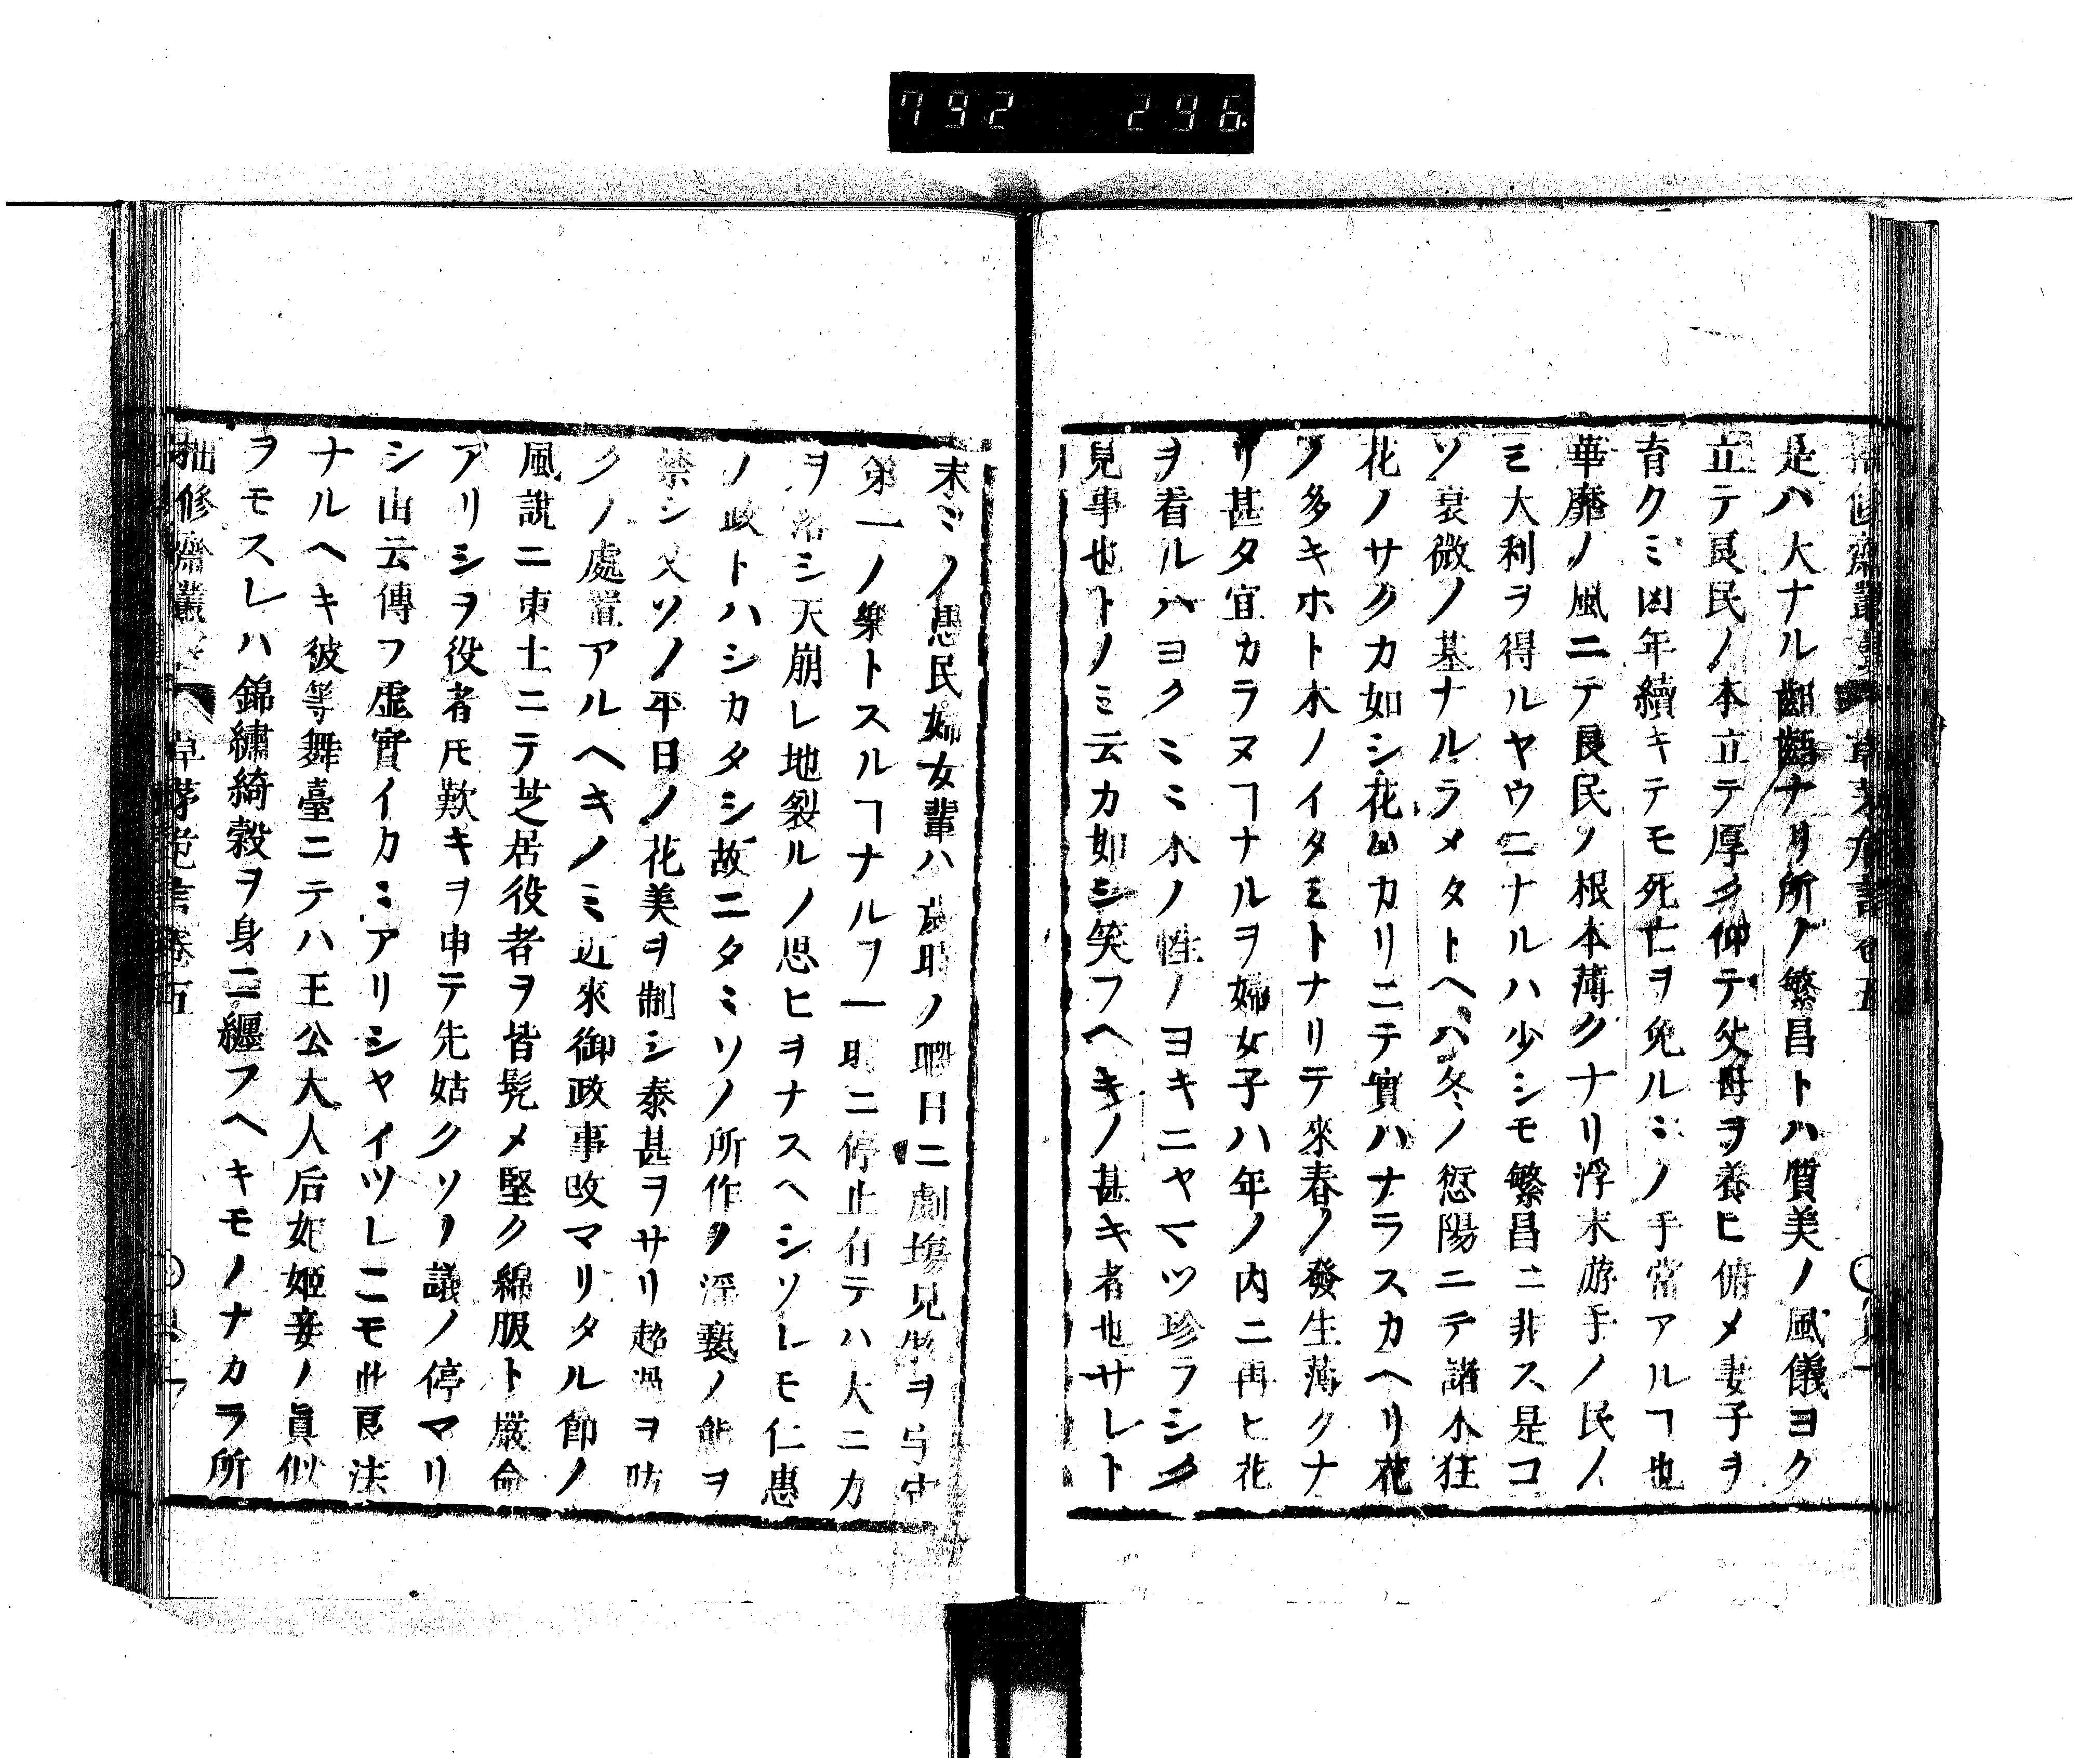 792 296
是ハ大ナル齟齬ナリ所ノ繁昌トハ質美ノ風儀ヨク
立テ良民ノ本立テ厚ク仰テ父母ヲ養ヒ俯メ妻子ヲ
育クミ凶年續キテモ死亡ヲ免ルミノ手當アルヿ也
華靡ノ風ニテ良民ノ根本薄クナリ浮末游手ノ民ノ
ミ大利ヲ得ルヤウニナルハ少シモ繁昌ニ非ス是コ
ソ衰微ノ基ナルラメタトヘハ冬ノ愆陽ニテ諸木狂
花ノサクカ如シ花ハカリニテ實ハナラスカヘリ花
ノ多キホト木ノイタミトナリテ來春ノ發生薄クナ
リ甚タ宜カラヌヿナルヲ婦女子ハ年ノ内ニ再ヒ花
ヲ看ルハヨクミミ木ノ性ノヨキニヤマツ珍ラシク
見事也トノミ云カ如シ笑フヘキノ甚キ者也サレト
末ミノ愚民婦女輩ハ歳時ノ暇日ニ劇塲見物ヲ
第一ノ樂トスルヿナルヲ一時ニ停止有テハ大ニカ
ヲ落シ天崩レ地裂ルノ思ヒヲナスヘシソレモ仁惠
ノ政トハシカタシ故ニタミソノ所作ノ淫褻ノ能ヲ
禁シ又ソノ平日ノ花美ヲ制シ泰甚ヲサリ超過ヲ防
クノ處置アルヘキノミ近來御政事改マリタル節ノ
風說ニ東士ニテ芝居役者ヲ皆髡メ堅ク綿服ト嚴命
アリシヲ役者𪜈歎キヲ申テ先姑クソノ議ノ停マリ
シ由云傳フ虛實イカミアリシヤイツレニモ此良法
ナルヘキ彼等舞臺ニテハ王公大人后妃姬妾ノ眞似
ヲモスレハ錦繡綺穀ヲ身ニ纒フヘキモノナカラ所
拙修齋叢書 草茅危言卷五